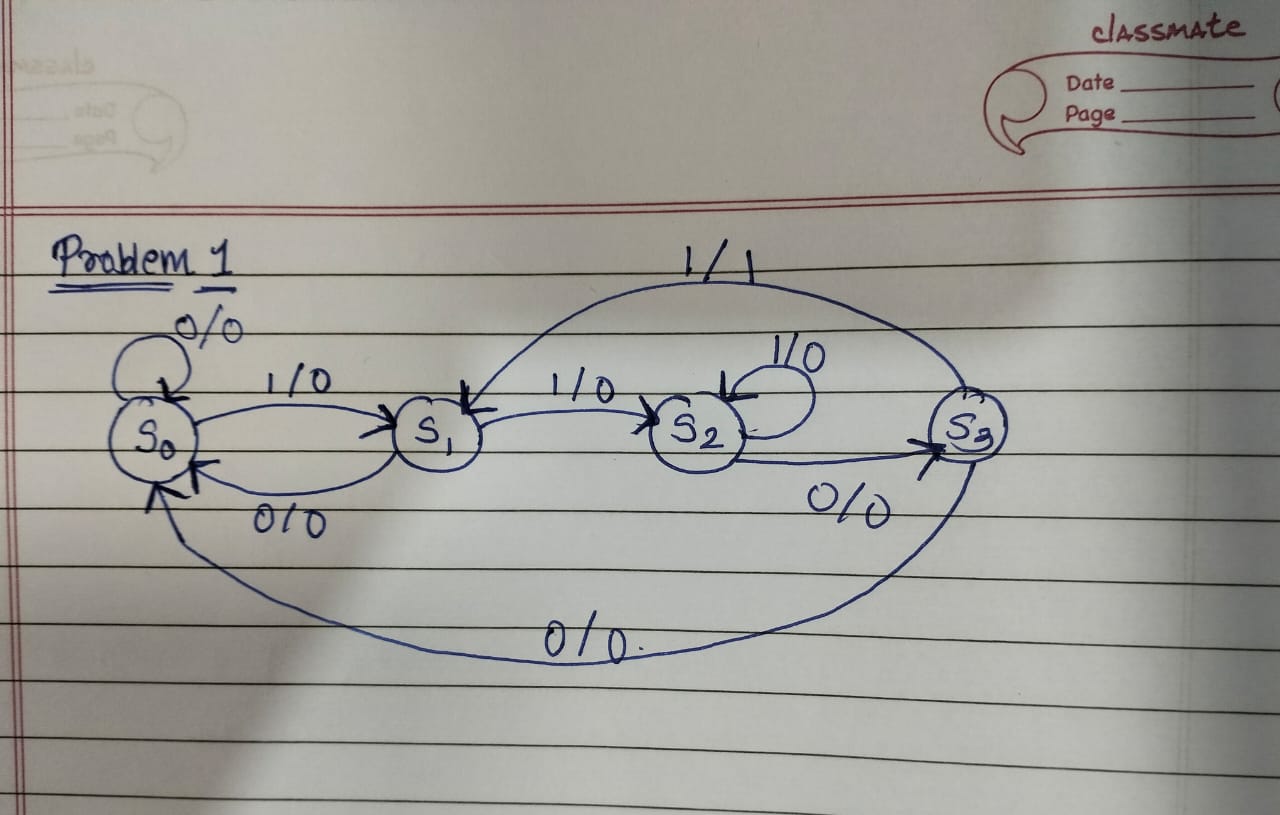 classmate
Date
Page
Problem 1
1/1
0/0
1/0
1/0
1/0
S0
S1
S2
S3
0/0
0/0
0/0